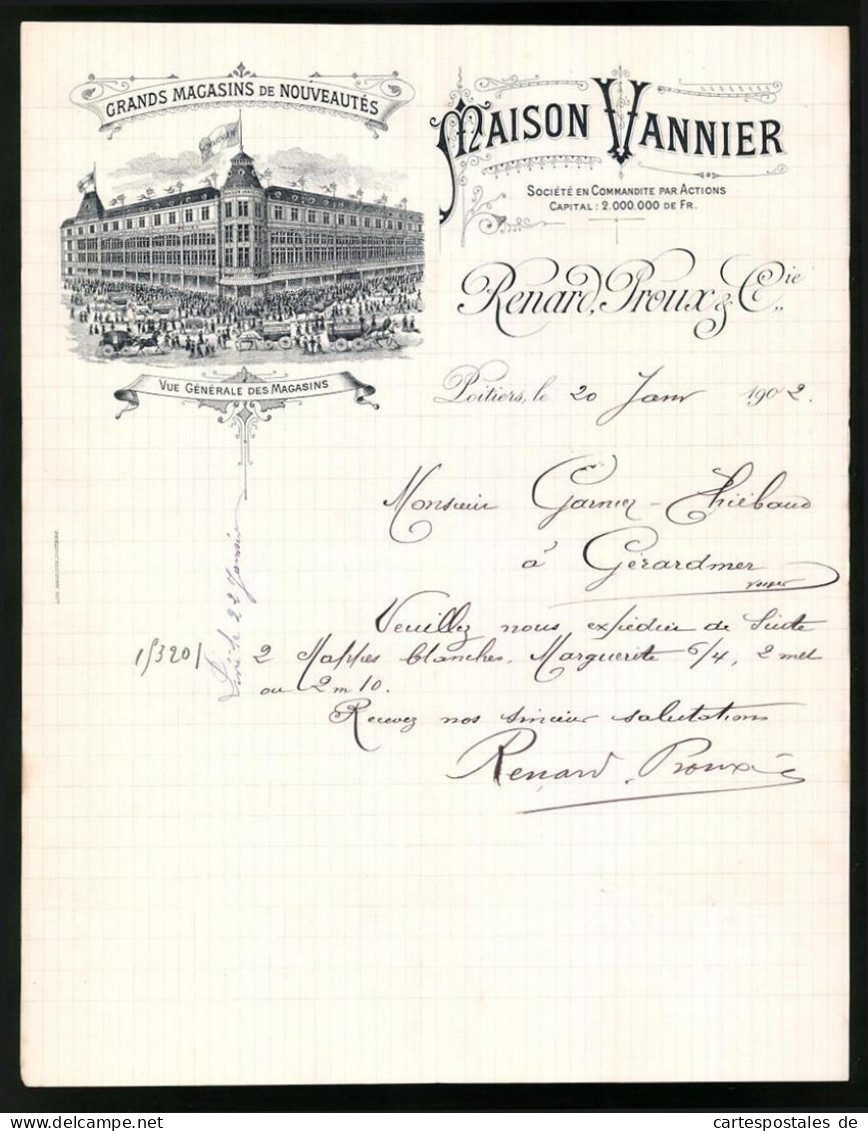 GRANDS MAGASINS DE NOUVEAUTÉS
VUE GÉNÉRALE DES MAGASINS
MAISON VANNIER
SOCIÉTÉ EN COMMANDITE PAR ACTIONS
CAPITAL : 2.000.000 DE FR.
Renard, Proux & Cie
Poitiers, le 20 Janv 1902.
Monsieur Garnier-Thiébaud
à Gérardmer
Vosges
Veuillez nous expédier de suite
2 Nappes blanches, Marguerite 6/4, 2 met
ou 2 m 10.
Recevez nos sincères salutations
Renard, Proux &
15320
le 22 Janvier
cartespostales de